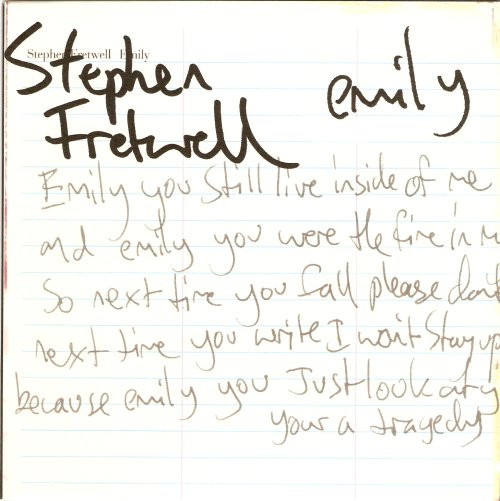 Stephen Fretwell Emily
Stephen emily
Fretwell
Emily you still live inside of me
and emily you were the fire in m
So next time you fall please dont
next time you write I wont Stay up
because emily you Just look at y
your a tragedy